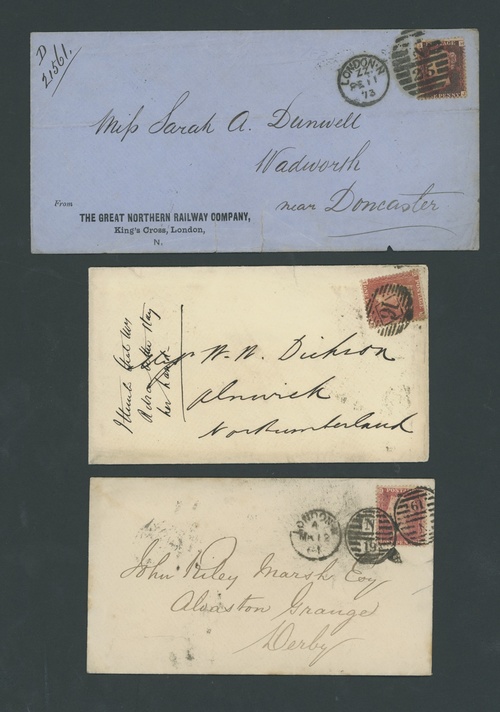 D
21561.
LONDON·N
Z Z
DE 11
73
25
Miss Sarah A. Dunwell
Wadworth
near Doncaster
From
THE GREAT NORTHERN RAILWAY COMPANY,
King's Cross, London,
N.
16
W. W. Dickson
Alnwick
Northumberland
LONDON
4
N
19
19
POSTAGE
John Riley Marsh Esq
Alvaston Grange
Derby